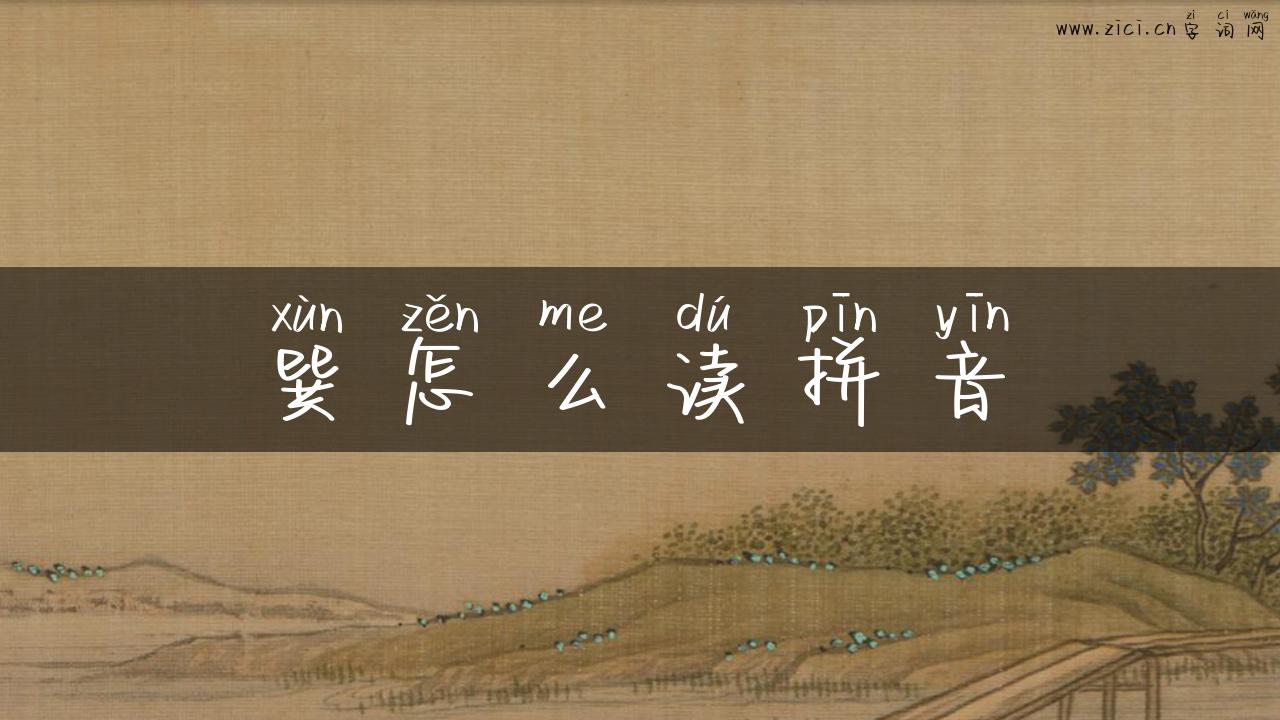 zì cí wǎng
www.zici.cn字词网
xùn zěn me dú pīn yīn
巽怎么读拼音